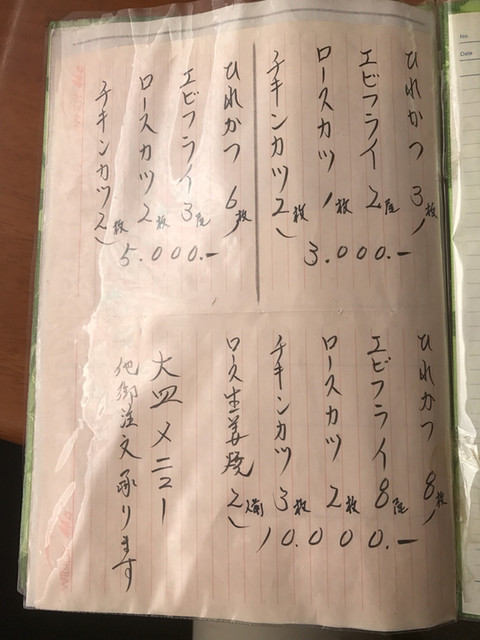 ひれかつ 3枚
エビフライ 2尾
ロースカツ 1枚
チキンカツ 2枚
3.000.-
ひれかつ 6枚
エビフライ 3尾
ロースカツ 2枚
チキンカツ 2枚
5.000.-
ひれかつ 8枚
エビフライ 8尾
ロースカツ 2枚
チキンカツ 3枚
ロース生姜焼 2人前
10.000.-
大皿メニュー
他御注文承ります
No.
Date